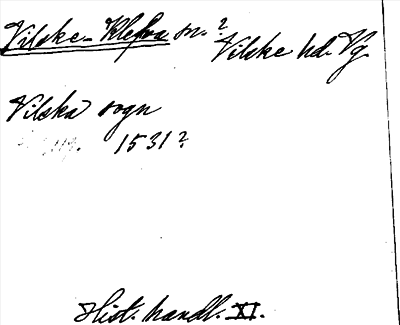 Vilske-Klefva sn.? Vilske hd. Vg.
Vilska sogn
1531?
Hist. handl. XI.